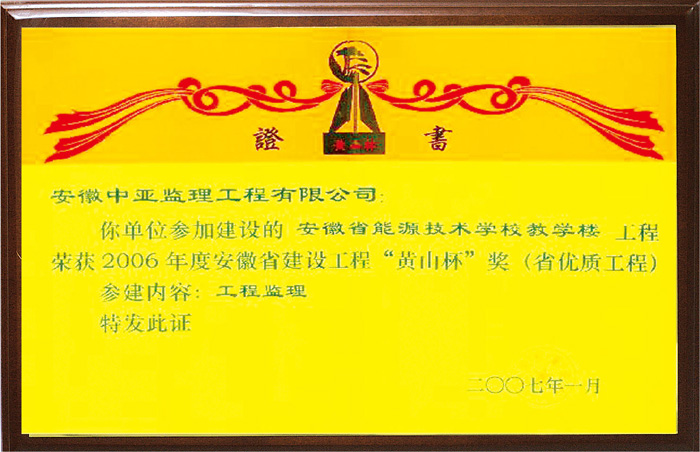 黄山杯
證書
安徽中亚监理工程有限公司:
你单位参加建设的 安徽省能源技术学校教学楼 工程
荣获2006年度安徽省建设工程“黄山杯”奖（省优质工程）
参建内容：工程监理
特发此证
二〇〇七年一月